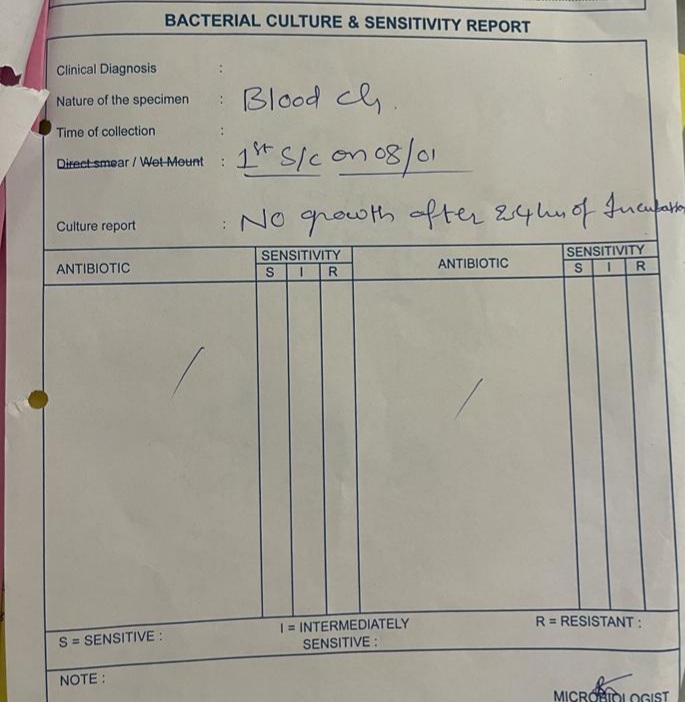 BACTERIAL CULTURE & SENSITIVITY REPORT
Clinical Diagnosis :
Nature of the specimen : Blood c/s.
Time of collection :
Direct smear / Wet Mount : 1st S/c on 08/01
Culture report : No growth after 24 hrs of Incubation
ANTIBIOTIC SENSITIVITY ANTIBIOTIC SENSITIVITY
S I R S I R
S = SENSITIVE : I = INTERMEDIATELY SENSITIVE : R = RESISTANT :
NOTE :
MICROBIOLOGIST